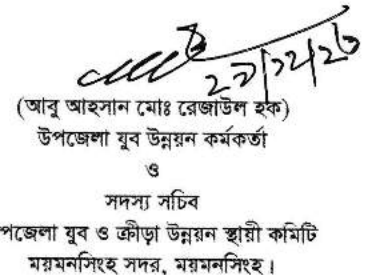 (আবু আহসান মোঃ রেজাউল হক)
উপজেলা যুব উন্নয়ন কর্মকর্তা
ও
সদস্য সচিব
পজেলা যুব ও ক্রীড়া উন্নয়ন স্থায়ী কমিটি
ময়মনসিংহ সদর, ময়মনসিংহ।